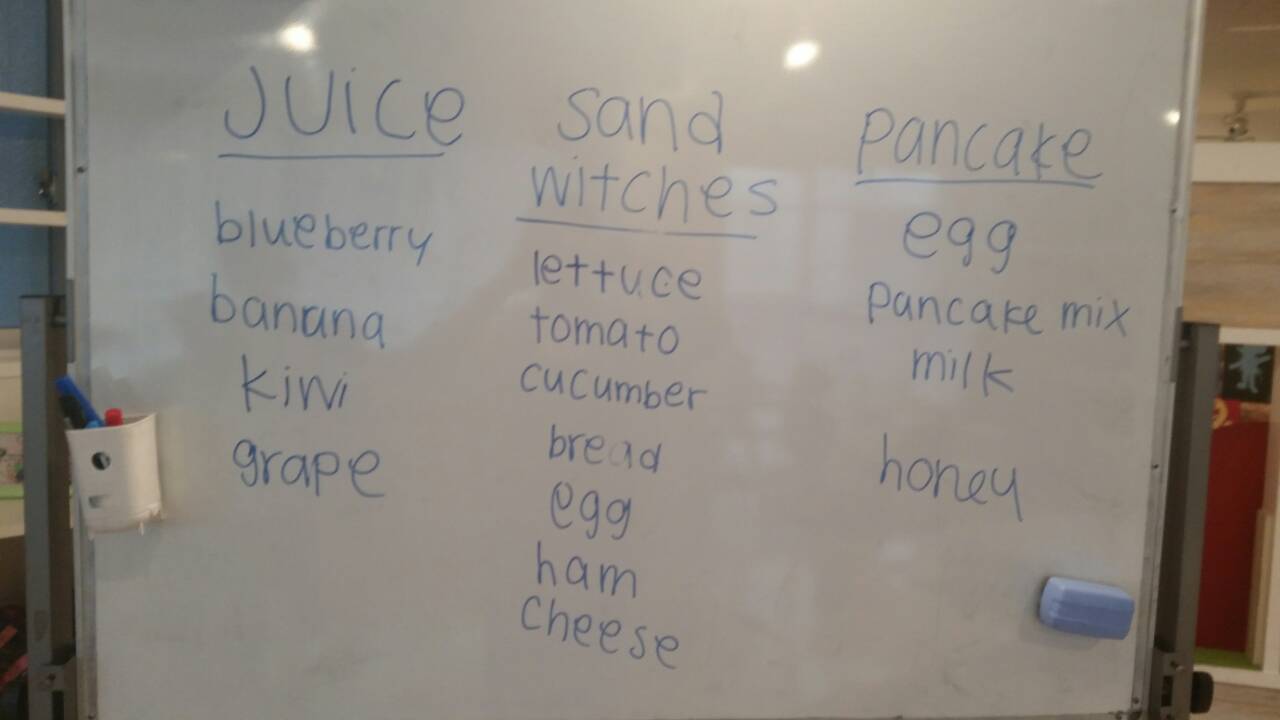 JUice
blueberry
banana
kiwi
grape
Sand
witches
lettuce
tomato
cucumber
bread
egg
ham
Cheese
Pancake
egg
Pancake mix
milk
honey